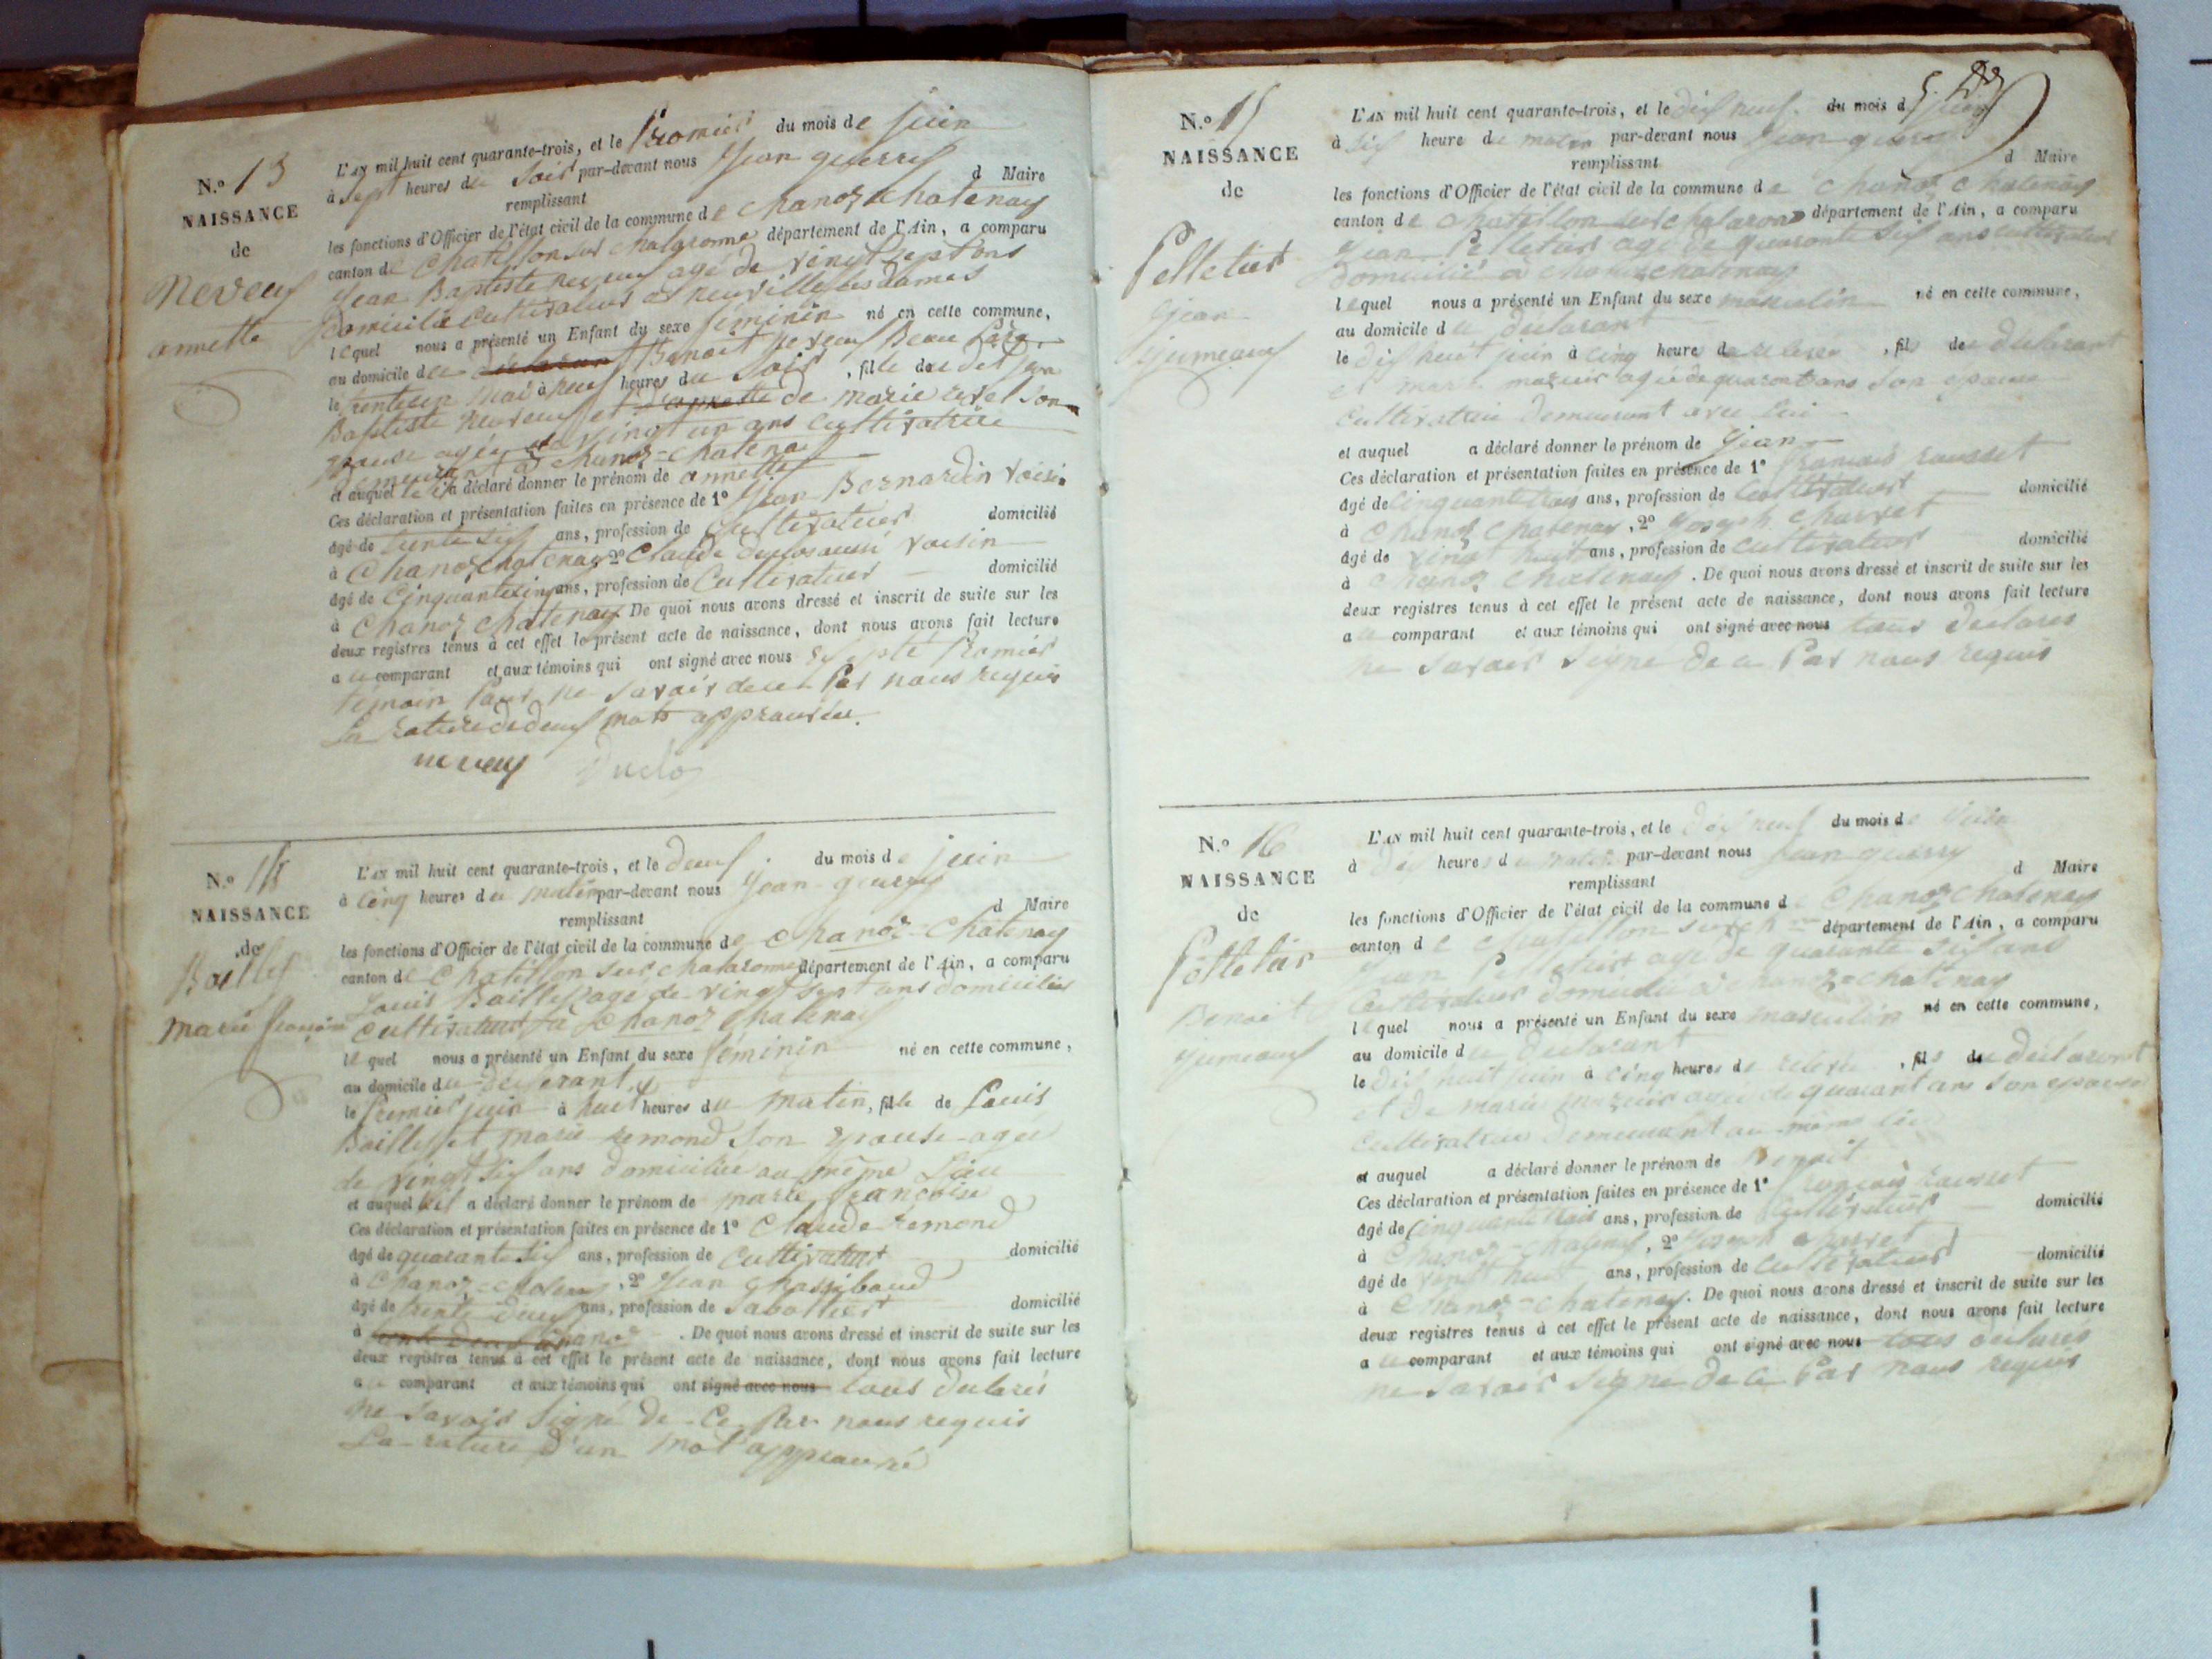 N.º 13
NAISSANCE
de
Neveux
annette
L'AN mil huit cent quarante-trois, et le Promier du mois de juin
à sept heures du soir par-devant nous Jean guerry
remplissant d Maire
les fonctions d'Officier de l'état civil de la commune de Chanoz chatenay
canton de Chatillon sur chalaronne département de l'Ain, a comparu
Jean Baptiste neveux agé de vingt sept ans
domicilié cultivateur à neuville les dames
lequel nous a présenté un Enfant du sexe féminin né en cette commune,
au domicile du declarant Benoit neveux Beau Père
le trente un mai à neuf heures du soir, fille de dit jean
Baptiste neveux et d'annette de marie revel son
epouse agée de vingt un ans cultivatrice
demeurant à chanoz-chatenay
et auquel il a déclaré donner le prénom de annette
Ces déclaration et présentation faites en présence de 1º Jean Bernardin voisin
âgé de trente six ans, profession de cultivateur domicilié
à Chanoz chatenay 2º Claude duclos aussi voisin
âgé de Cinquante cinq ans, profession de Cultivateur domicilié
à Chanoz chatenay De quoi nous avons dressé et inscrit de suite sur les
deux registres tenus à cet effet le présent acte de naissance, dont nous avons fait lecture
a ce comparant et aux témoins qui ont signé avec nous excepté Promier
témoin Pour ne savoir de ce Par nous requis
La rature de deux mots approuvée.
neveux Duclo
N.º 14
NAISSANCE
de
Baillet
marie françoise
L'AN mil huit cent quarante-trois, et le deux du mois de juin
à cinq heures du matin par-devant nous Jean guerry
remplissant d Maire
les fonctions d'Officier de l'état civil de la commune de Chanoz-Chatenay
canton de Chatillon sur chalaronne département de l'Ain, a comparu
Louis Baillet agé de vingt sept ans domicilié
cultivateur à Chanoz chatenay
lequel nous a présenté un Enfant du sexe féminin né en cette commune,
au domicile du declarant
le premier juin à huit heures du matin, fille de Louis
Baillet et marie remond son epouse agee
de vingt six ans domiciliée au même Lieu
et auquel il a déclaré donner le prénom de marie françoise
Ces déclaration et présentation faites en présence de 1º Claude remond
âgé de quarante six ans, profession de cultivateur domicilié
à Chanoz-chatenay, 2º Jean Chassibaud
âgé de trente deux ans, profession de sabottier domicilié
à chanoz. De quoi nous avons dressé et inscrit de suite sur les
deux registres tenus à cet effet le présent acte de naissance, dont nous avons fait lecture
a ce comparant et aux témoins qui ont signé avec nous tous declarés
ne savoir signé de ce Par nous requis
La rature d'un mot approuvé
N.º 15
NAISSANCE
de
Pelletier
Jean
jumeaux
L'AN mil huit cent quarante-trois, et le dix neuf du mois de juin
à dix heure du matin par-devant nous Jean guerry
remplissant d Maire
les fonctions d'Officier de l'état civil de la commune de Chanoz Chatenay
canton de Chatillon sur chalaronne département de l'Ain, a comparu
Jean Pelletier agé de quarante six ans cultivateur
domicilié à chanoz chatenay
lequel nous a présenté un Enfant du sexe masculin né en cette commune,
au domicile du declarant
le dix huit juin à cinq heure de relevée, fils de declarant
et marie mazuir agée de quarante ans son epouse
cultivatrice demeurant avec lui
et auquel a déclaré donner le prénom de Jean
Ces déclaration et présentation faites en présence de 1º françois rousset
âgé de cinquante trois ans, profession de cultivateur domicilié
à Chanoz Chatenay, 2º Joseph Charvet
âgé de vingt huit ans, profession de cultivateur domicilié
à Chanoz Chatenay. De quoi nous avons dressé et inscrit de suite sur les
deux registres tenus à cet effet le présent acte de naissance, dont nous avons fait lecture
a ce comparant et aux témoins qui ont signé avec nous tous declares
ne savoir signe de ce Par nous requis
N.º 16
NAISSANCE
de
Pelletier
Benoit
jumeaux
L'AN mil huit cent quarante-trois, et le dix neuf du mois de juin
à dix heures du matin par-devant nous Jean guerry
remplissant d Maire
les fonctions d'Officier de l'état civil de la commune de Chanoz Chatenay
canton de Chatillon sur ch département de l'Ain, a comparu
Jean Pelletier agé de quarante six ans
cultivateur domicilié à Chanoz-chatenay
lequel nous a présenté un Enfant du sexe masculin né en cette commune,
au domicile du declarant
le dix huit juin à cinq heures de relevée, fils du declarant
et de marie mazuir agée de quarant ans son epouse
cultivatrice demeurant au même lieu
et auquel a déclaré donner le prénom de Benoit
Ces déclaration et présentation faites en présence de 1º françois rousset
âgé de cinquante trois ans, profession de cultivateur domicilié
à Chanoz-chatenay, 2º Joseph Charvet
âgé de vingt huit ans, profession de cultivateur domicilié
à Chanoz-chatenay. De quoi nous avons dressé et inscrit de suite sur les
deux registres tenus à cet effet le présent acte de naissance, dont nous avons fait lecture
a ce comparant et aux témoins qui ont signé avec nous tous declarés
ne savoir signe de ce Par nous requis